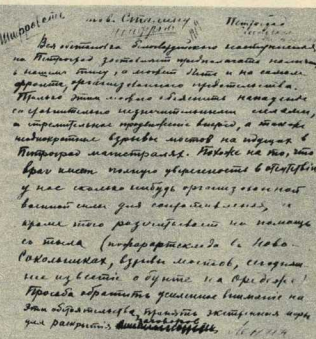 тов. Сталину
Петроград
Вся обстановка белогвардейского наступления
на Петроград заставляет предполагать наличие
в нашем тылу, а может быть и на самом
фронте, организованного предательства.
Только этим можно объяснить нападение
со сравнительно незначительными силами,
стремительное продвижение вперед, а также
неоднократные взрывы мостов на идущих в
Петроград магистралях. Похоже на то, что
враг имеет полную уверенность в отсутствии
у нас сколько-нибудь организованной
военной силы для сопротивления, и
кроме того рассчитывает на помощь
с тыла (пожар артсклада в Ново-
Сокольниках, взрывы мостов, сегодняш-
ние известия о бунте на Оредеже)
Просьба обратить усиленное внимание на
эти обстоятельства, принять экстренные меры
для раскрытия заговоров.
Ленин